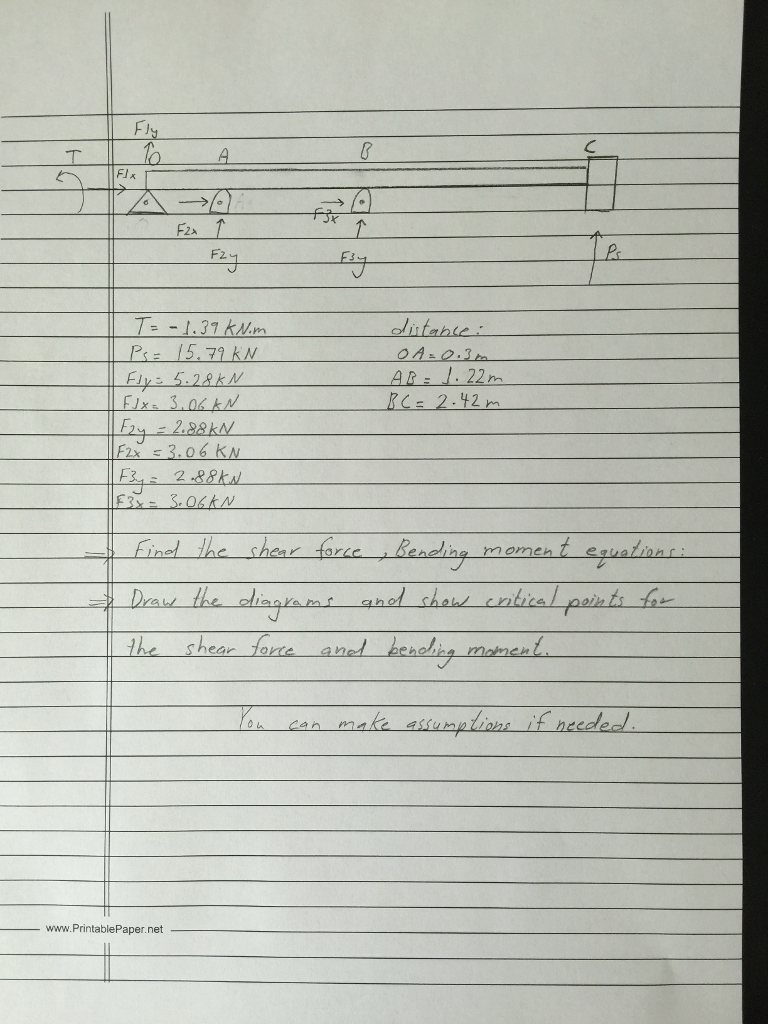 F1y
T O A B C
F1x
F2x F3x
F2y F3y Ps
T = -1.39 kN.m distance:
Ps = 15.79 KN OA = 0.3m
F1y = 5.28KN AB = 1.22m
F1x = 3.06 KN BC = 2.42 m
F2y = 2.88KN
F2x = 3.06 KN
F3y = 2.88KN
F3x = 3.06KN
=> Find the shear force, Bending moment equations:
=> Draw the diagrams and show critical points for
the shear force and bending moment.
You can make assumptions if needed.
www.PrintablePaper.net